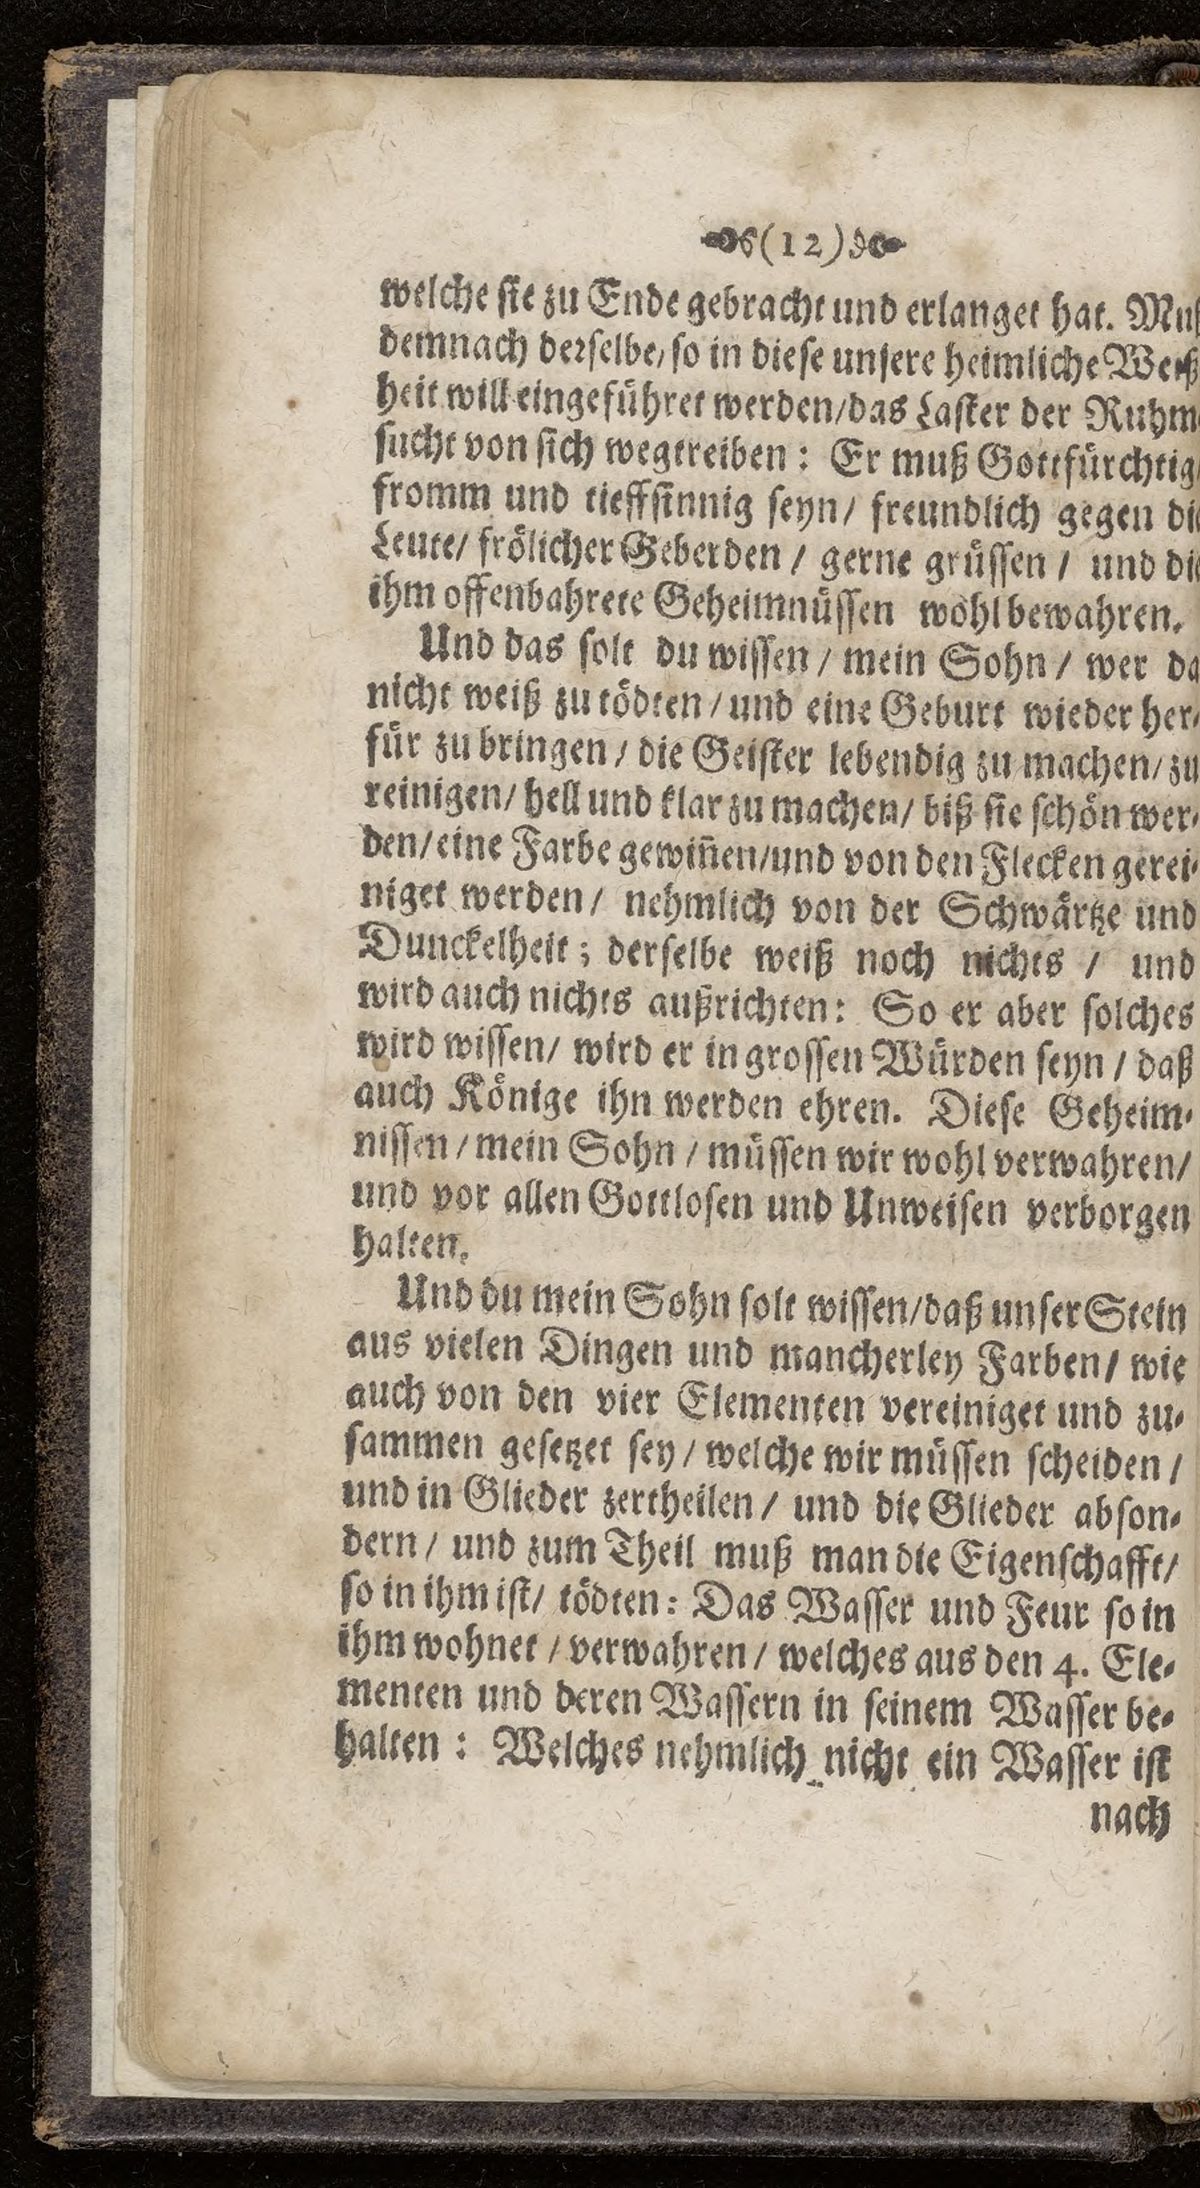 (12)
welche sie zu Ende gebracht und erlanget hat. Muß
demnach derselbe/ so in diese unsere heimliche Weiß
heit will eingeführet werden/ das Laster der Ruhm
sucht von sich wegtreiben: Er muß Gottfürchtig/
fromm und tieffsinnig seyn/ freundlich gegen die
Leute/ frölicher Geberden / gerne grüssen / und die
ihm offenbahrete Geheimnüssen wohl bewahren.
Und das solt du wissen / mein Sohn / wer da
nicht weiß zu tödten / und eine Geburt wieder her-
für zu bringen / die Geister lebendig zu machen/ zu
reinigen/ hell und klar zu machen/ biß sie schön wer-
den/ eine Farbe gewiñen/ und von den Flecken gerei-
niget werden / nehmlich von der Schwärtze und
Dunckelheit; derselbe weiß noch nichts / und
wird auch nichts außrichten: So er aber solches
wird wissen/ wird er in grossen Würden seyn / daß
auch Könige ihn werden ehren. Diese Geheim-
nissen / mein Sohn / müssen wir wohl verwahren/
und vor allen Gottlosen und Unweisen verborgen
halten.
Und du mein Sohn solt wissen/ daß unser Stein
aus vielen Dingen und mancherley Farben/ wie
auch von den vier Elementen vereiniget und zu-
sammen gesetzet sey / welche wir müssen scheiden /
und in Glieder zertheilen / und die Glieder abson-
dern / und zum Theil muß man die Eigenschafft/
so in ihm ist/ tödten: Das Wasser und Feur so in
ihm wohnet / verwahren / welches aus den 4. Ele-
menten und deren Wassern in seinem Wasser be-
halten : Welches nehmlich nicht ein Wasser ist
nach